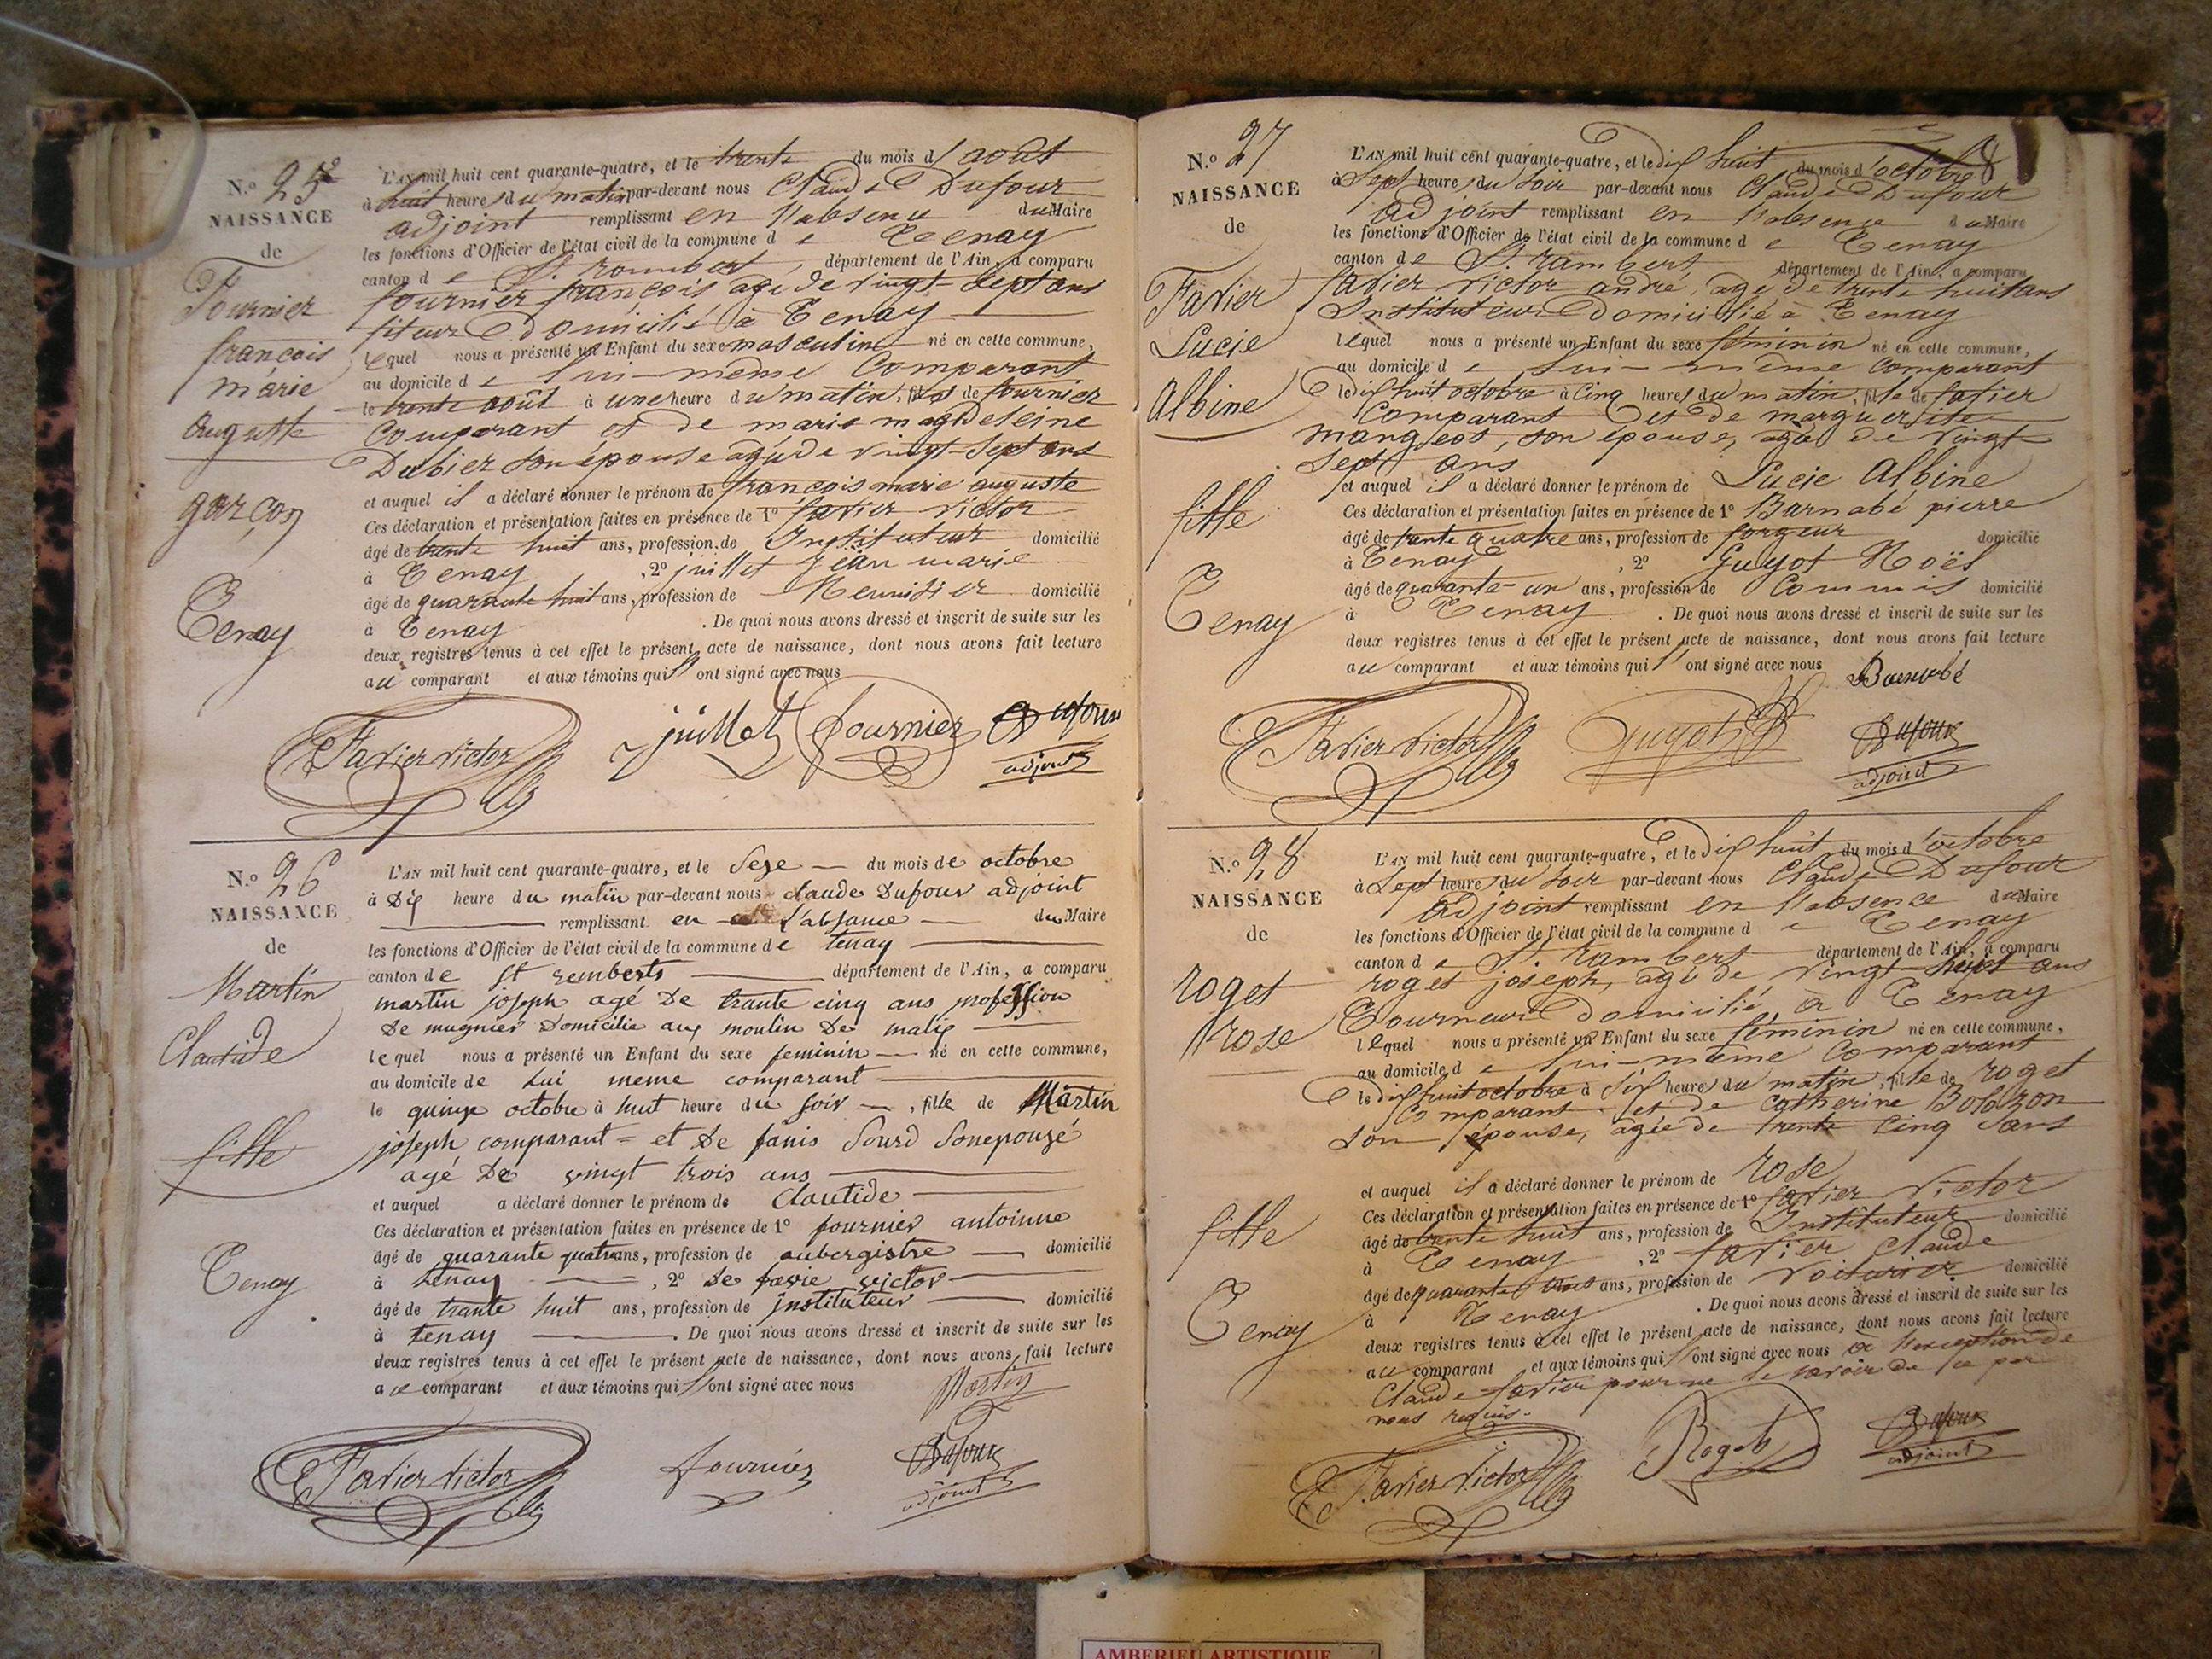 N.º 25
NAISSANCE
de
Fournier
françois
marie
auguste
garçon
Tenay
L'AN mil huit cent quarante-quatre, et le trente du mois d'août
à huit heures du matin par-devant nous Claude Dufour
adjoint remplissant en l'absence du Maire
les fonctions d'Officier de l'état civil de la commune de Tenay
canton de St. rambert, département de l'Ain, a comparu
fournier françois agé de vingt-sept ans
fileur domicilié à Tenay
lequel nous a présenté un Enfant du sexe masculin né en cette commune,
au domicile de lui-même Comparant
le trente août à une heure du matin, fils de fournier
Comparant et de marie magdeleine
Dubier son épouse agée de vingt-sept ans
et auquel il a déclaré donner le prénom de françois marie auguste
Ces déclaration et présentation faites en présence de 1º favier victor
âgé de trente huit ans, profession de Instituteur domicilié
à Tenay, 2º juillet jean marie
âgé de quarante huit ans, profession de Meunisier domicilié
à Tenay. De quoi nous avons dressé et inscrit de suite sur les
deux registres tenus à cet effet le présent acte de naissance, dont nous avons fait lecture
au comparant et aux témoins qui l'ont signé avec nous
Favier victor juillet fournier Dufour
adjoint
N.º 26
NAISSANCE
de
Martin
Clautide
fille
Tenay
L'AN mil huit cent quarante-quatre, et le seze du mois de octobre
à dix heure du matin par-devant nous claude Dufour adjoint
remplissant en l'absance du Maire
les fonctions d'Officier de l'état civil de la commune de tenay
canton de st remberts département de l'Ain, a comparu
martin joseph agé de trante cinq ans profession
de mugnier domicilie aux moulin de malix
lequel nous a présenté un Enfant du sexe feminin né en cette commune,
au domicile de lui meme comparant
le quinze octobre à huit heure du soir, fille de Martin
joseph comparant et de fanis Sourd Sonepouzé
agé de vingt trois ans
et auquel a déclaré donner le prénom de Clautide
Ces déclaration et présentation faites en présence de 1º fournier antoinne
âgé de quarante quatre ans, profession de aubergistre domicilié
à tenay, 2º de favie victor
âgé de trante huit ans, profession de instituteur domicilié
à tenay. De quoi nous avons dressé et inscrit de suite sur les
deux registres tenus à cet effet le présent acte de naissance, dont nous avons fait lecture
au comparant et aux témoins qui l'ont signé avec nous Martin
Favier victor fournier Dufour
adjoint
N.º 27
NAISSANCE
de
Favier
Lucie
Albine
fille
Tenay
8
L'AN mil huit cent quarante-quatre, et le dix huit du mois d'octobre
à Sept heures du soir par-devant nous Claude Dufour
adjoint remplissant en l'absence du Maire
les fonctions d'Officier de l'état civil de la commune de Tenay
canton de St. rambert département de l'Ain, a comparu
favier victor andré, agé de trente huit ans
Instituteur Domicilié à Tenay
lequel nous a présenté un Enfant du sexe féminin né en cette commune,
au domicile de lui-même comparant
le dix huit octobre à cinq heures du matin, fille de favier
Comparant et de marguerite
mangeot, son épouse, agée de vingt
Sept ans
et auquel il a déclaré donner le prénom de Lucie Albine
Ces déclaration et présentation faites en présence de 1º Barnabé pierre
âgé de trente quatre ans, profession de forgeur domicilié
à Tenay, 2º Guyot Noël
âgé de quarante-un ans, profession de Commis domicilié
à Tenay. De quoi nous avons dressé et inscrit de suite sur les
deux registres tenus à cet effet le présent acte de naissance, dont nous avons fait lecture
au comparant et aux témoins qui l'ont signé avec nous Barnabé
Favier victor Guyot Dufour
adjoint
N.º 28
NAISSANCE
de
roget
rose
fille
Tenay
L'AN mil huit cent quarante-quatre, et le dix huit du mois d'octobre
à Sept heures du soir par-devant nous Claude Dufour
adjoint remplissant en l'absence du Maire
les fonctions d'Officier de l'état civil de la commune de Tenay
canton de St. rambert département de l'Ain, a comparu
roget joseph, agé de vingt-sept ans
Tourneur domicilié à Tenay
lequel nous a présenté un Enfant du sexe féminin né en cette commune,
au domicile de lui-même Comparant
le dix huit octobre à six heures du matin, fille de roget
Comparant et de catherine Bolozon
son épouse, agée de trente cinq ans
et auquel il a déclaré donner le prénom de rose
Ces déclaration et présentation faites en présence de 1º favier victor
âgé de trente huit ans, profession de Instituteur domicilié
à Tenay, 2º favier claude
âgé de quarante ans, profession de voiturier domicilié
à Tenay. De quoi nous avons dressé et inscrit de suite sur les
deux registres tenus à cet effet le présent acte de naissance, dont nous avons fait lecture
au comparant et aux témoins qui l'ont signé avec nous à l'exception de
Claude favier pour ne le savoir de ce par
nous requis.
Favier Victor Roget Dufour
adjoint
AMBERIEU ARTISTIQUE